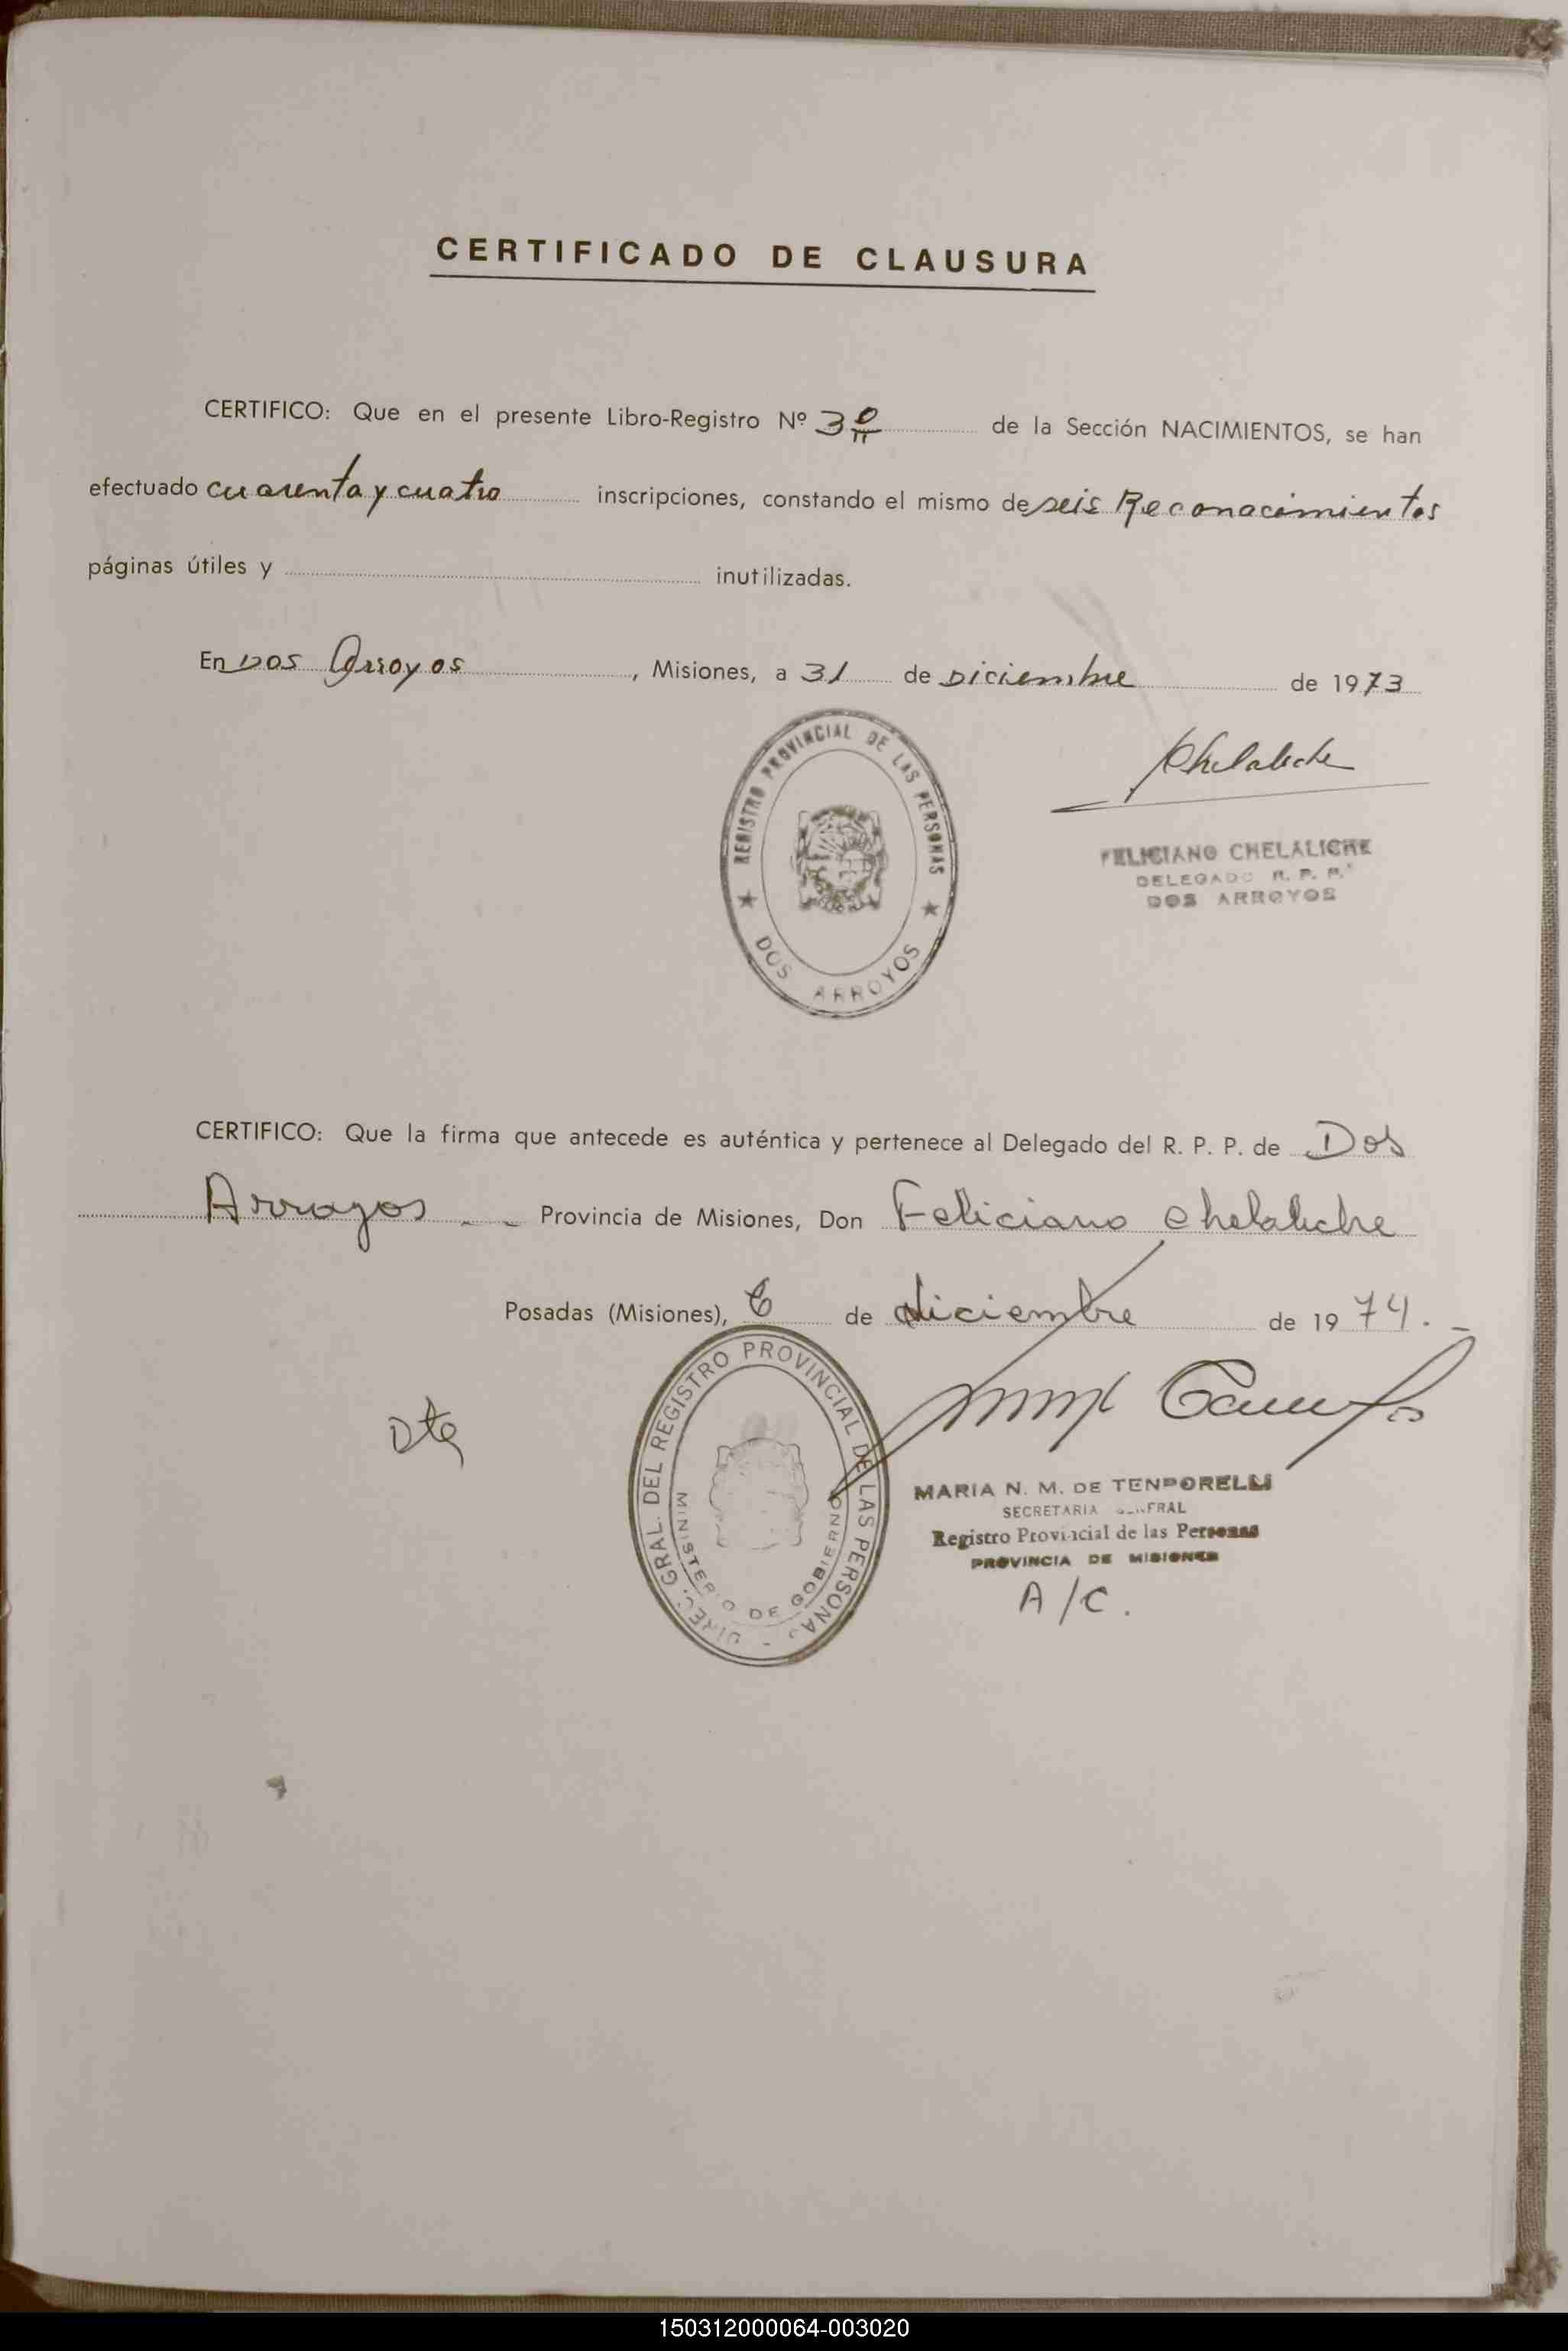 CERTIFICADO DE CLAUSURA
CERTIFICO: Que en el presente Libro-Registro Nº 3º de la Sección NACIMIENTOS, se han
efectuado cuarenta y cuatro inscripciones, constando el mismo de seis Reconocimientos
páginas útiles y inutilizadas.
En Dos Arroyos, Misiones, a 31 de Diciembre de 1973
REGISTRO PROVINCIAL DE LAS PERSONAS
DOS ARROYOS
Chelaliche
FELICIANO CHELALICHE
DELEGADO R. P. P.
DOS ARROYOS
CERTIFICO: Que la firma que antecede es auténtica y pertenece al Delegado del R. P. P. de Dos
Arroyos -- Provincia de Misiones, Don Feliciano Chelaliche
Posadas (Misiones), 6 de diciembre de 1974.-
DIREC. GRAL. DEL REGISTRO PROVINCIAL DE LAS PERSONAS -
MINISTERIO DE GOBIERNO
MARIA N. M. DE TENPORELLI
SECRETARIA GENERAL
Registro Provincial de las Personas
PROVINCIA DE MISIONES
A/C.
150312000064-003020